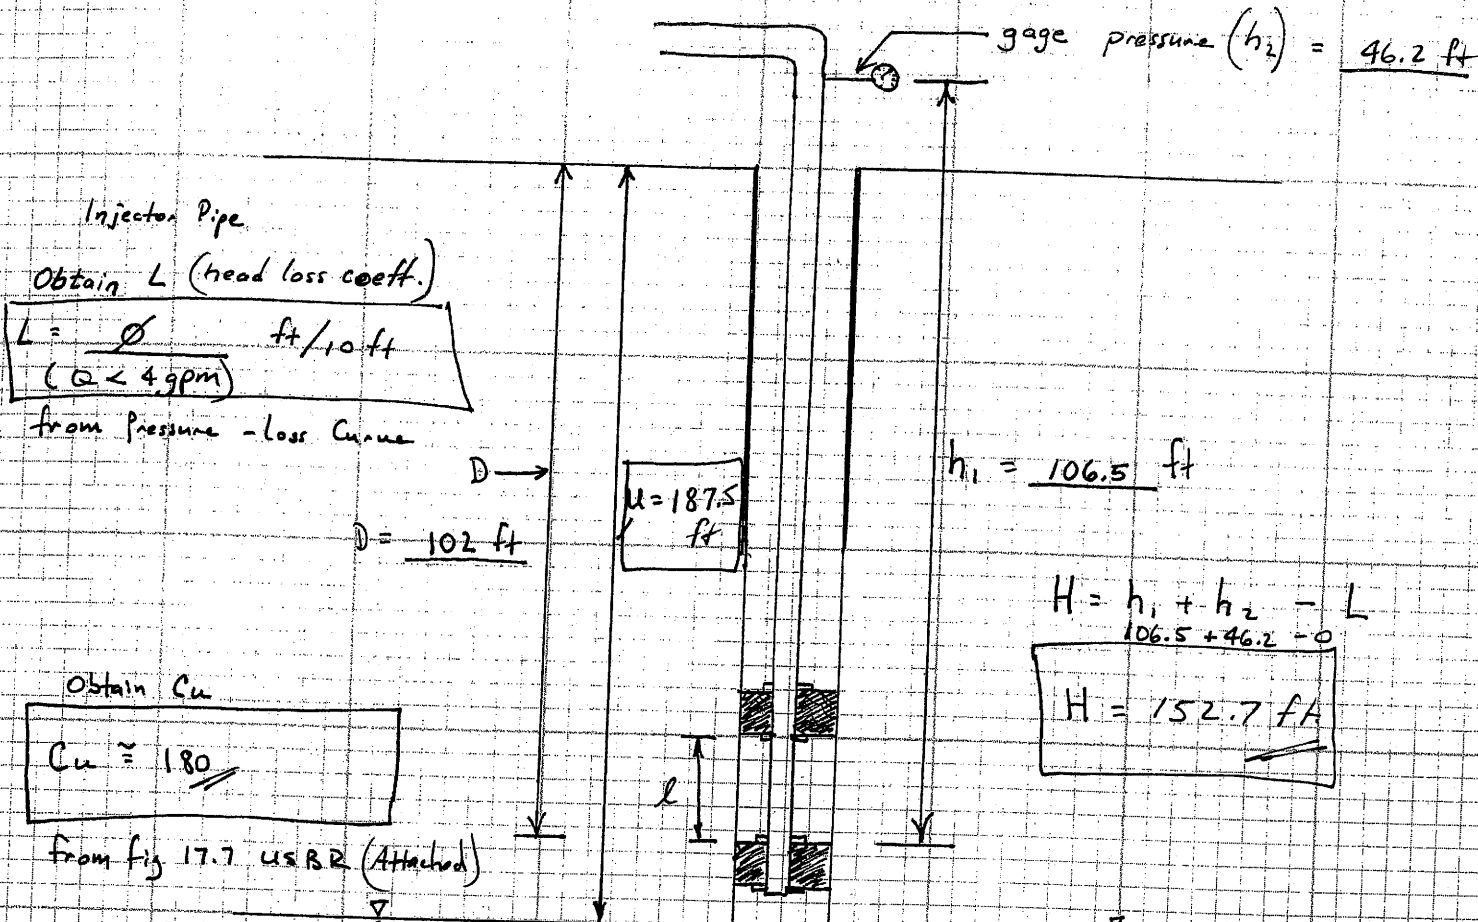 gage pressure (h₂) = 46.2 ft
Injector Pipe
Obtain L (head loss coeff.)
L = Ø ft/10 ft
(Q < 4 gpm)
from Pressure - Loss Curve
D →
D = 102 ft
U = 187.5
ft
h₁ = 106.5 ft
H = h₁ + h₂ - L
106.5 + 46.2 - 0
H = 152.7 ft
Obtain Cu
Cu ≅ 180
from fig 17.7 USBR (Attached)
l